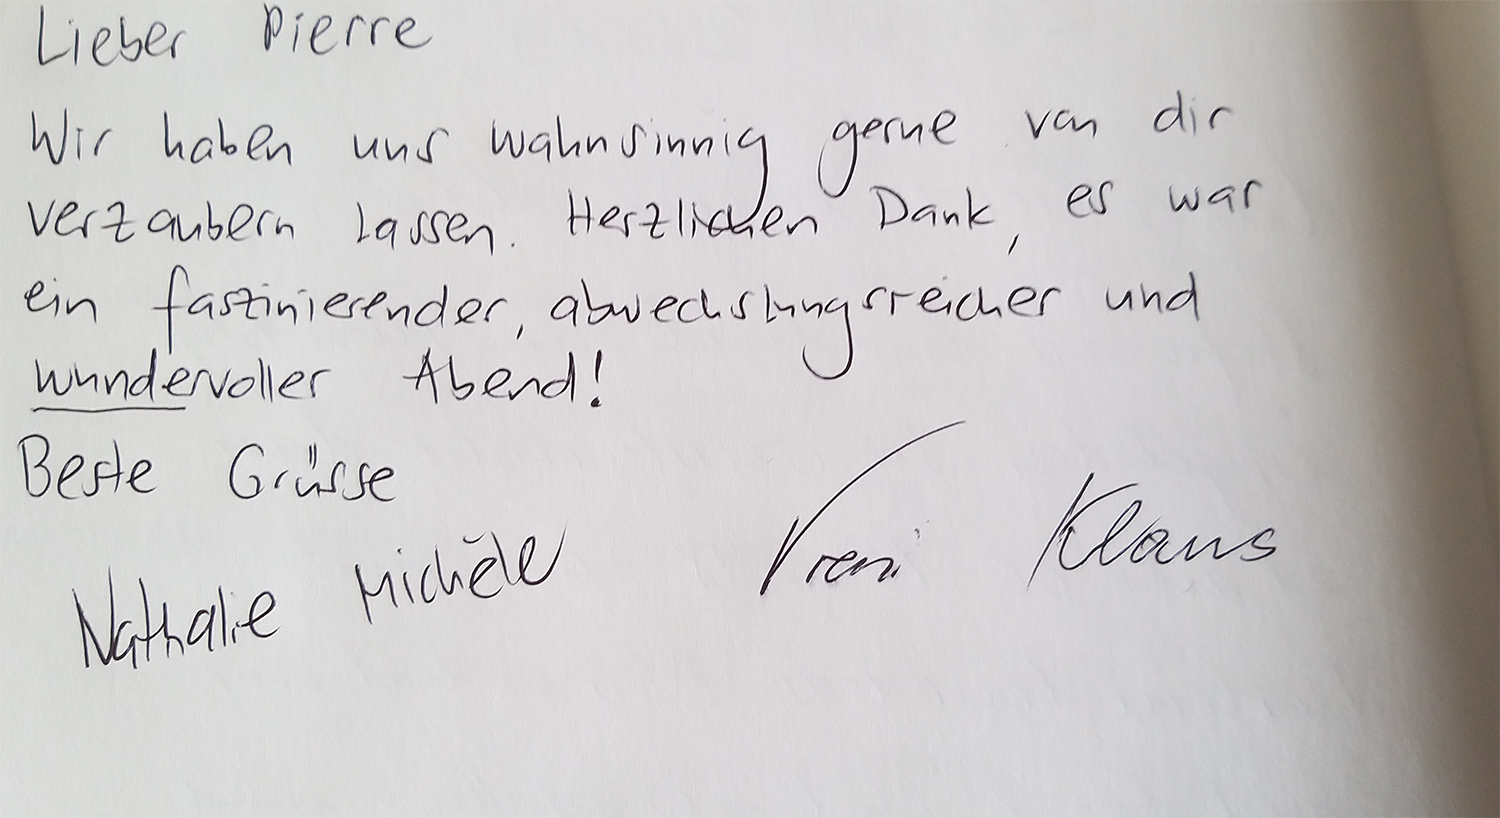 Lieber Pierre
Wir haben uns wahnsinnig gerne von dir
verzaubern lassen. Herzlichen Dank, es war
ein faszinierender, abwechslungsreicher und
wundervoller Abend!
Beste Grüsse
Nathalie Michèle Vreni Klaus